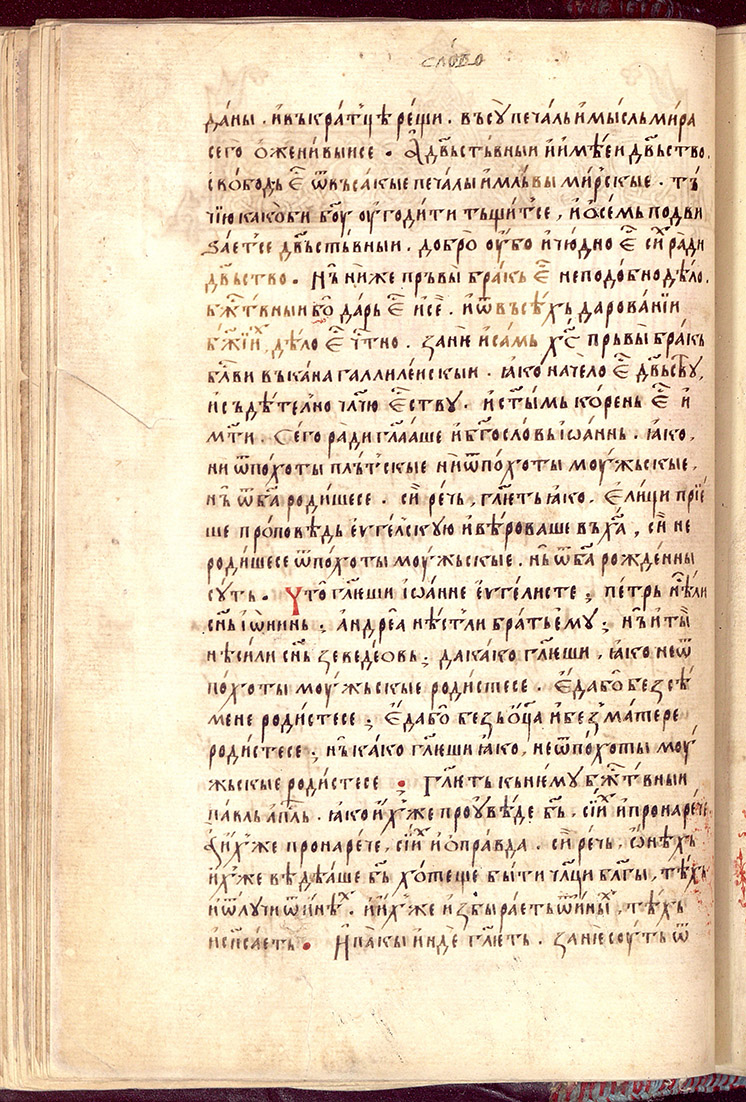 слово
даны · и въкратцѣ рещи · въсꙋ печаль и мысль мира
сего ѡженивыисе · А дв҃ьствьныи и имѣеи дв҃ьство,
свободь ѥ҃ ѿ въсакые печалы и мльвы мирские · тъ
чїю како би бг҃ꙋ оугодити тьщитсе, и ѡ семь подви
ꙁаетсе дв҃ьствьныи · добро оубо и чюдно ѥ҃ сиⷯ ради
дв҃ьство · Нь ниже прьвы бракь ѥ҃ неподобно дѣло,
бжⷭ҇твныи бо дарь ѥ҃ и се · и ѿ въсѣхь дарованїи
бж҃їиⷯ, дѣло ѥ҃ чⷭ҇тно · ꙁане и самь хс҃ прьвы бракь
блг҃ви въ кана галлилеискыи · ꙗко начело ѥ҃ дв҃ьствꙋ,
и съдѣтелно чл҃чю ѥⷭ҇ствꙋ · и ст҃ымь корень ѥ҃ и
мт҃и · Сего ради гл҃ааше и бг҃ословь іѡаннь · ꙗко,
ни ѿ похоты пльтские ни ѿ похоты моужьскые,
нь ѿ ба҃ родишесе · си рѣчь, гл҃ѥть ꙗко · Елици прїе
ше проповѣдь еѵг҃елскую и вѣроваше въ ха҃, си не
родишесе ѿ похоты моужьскые · нь ѿ ба҃ рожденны
сꙋть · Что гл҃ѥши іѡанне еѵг҃елисте ; петрь нѣ ли
сн҃ь іѡнинь ; андреа нѣст ли брать ѥмꙋ ; нь и ты
нѣси ли сн҃ь ꙁеведеѡвь ; да како гл҃ѥши, ꙗко не ѿ
похоты моужьскые родистесе · Еда бо беꙁ сѣ
мене родистесе ; Еда бо беꙁь ѡц҃а и беꙁ матере
родистесе ; нь како гл҃ѥши ꙗко, не ѿ похоты моу
жьскые родистесе · Гл҃ѥть къ нѥмꙋ бжⷭ҇твныи
павль ап҃ль · ꙗко ихже проувѣде бь҃, сїиⷯ и пронарече
А ихже пронарече, сїиⷯ и ѡправда · си рѣчь, ѡнѣхь
ихже вѣдѣаше бь҃ хотеще быти чл҃ци бл҃гы, тѣхь
и ѿлучи ѿ инѣⷯ · и ихже иꙁбыраеть ѿ иныⷯ, тѣхь
и сп҃саеть · И пакы инде гл҃ѥть · ꙁане соуть ѿ